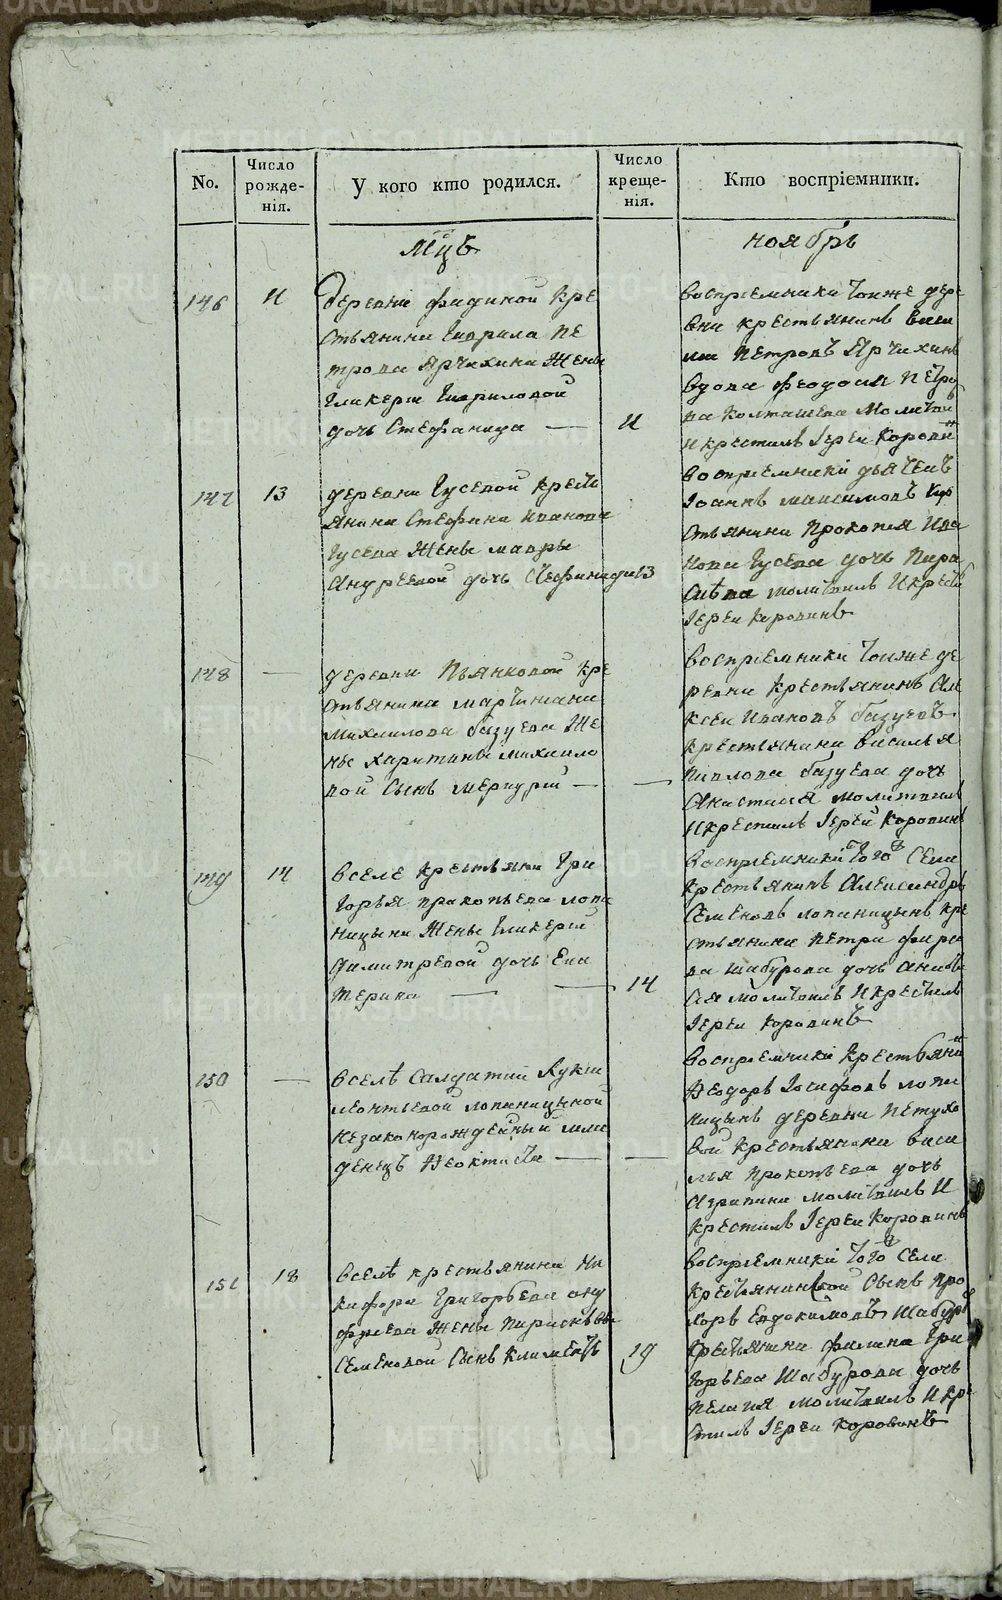 No.
Число рожде-нія.
У кого кто родился.
Число креще-нія.
Кто воспріемники.
Мцъ
ноябрь
146
11
деревни фадиной кре
стьянина Гаврила пе
трова Ярчихина жены
Гликерии Гавриловой
дочь Стефанида
11
воспріемники тоиже дере
вни крестьянинъ
петровъ Ярчихинъ
вдова феодосия петро
ва Колташева молитви
и крестилъ Іереи Корови
147
13
деревни Гусевой кресть
янина Стефана иванова
Гусева жены мавры
Андреевой дочь
13
воспріемники дьячекъ
Іоаннъ максимовъ кре
стьянина Прокопия ива
нова Гусева дочь Пара
скева молитвилъ и крести
Іереи коровинъ
148
деревни Пьянковой кре
стьянина мартиниана
михаилова базуева же
ны харитины михаило
вой Сынъ меркурій
воспріемники тоиже де
ревни крестьянинъ Але
ксеи ивановъ базуевъ
крестьянина василья
павлова базуева дочь
Анастасия молитвилъ
и крестилъ Іереи Коровинъ
149
14
в селе крестьянина Гри
горья прокопьева лопа
ницына жены Гликерии
димитревой дочь Ека
терина
14
воспріемники того села
крестьянинъ Александръ
Семеновъ лопаницынъ кре
стьянина петра
ва шабурова дочь
молитвилъ и крестилъ
Іереи коровинъ
150
в селѣ Салдатки Лукии
леонтьевой лопаницыной
незаконорожденный мла
денецъ Феоктиста
воспріемники крестьяни
Феодоръ Іосифовъ лопа
ницынъ деревни петухо
вой крестьянина васи
лья прокопьева дочь
Аграпина молитвилъ и
крестилъ Іереи Коровинъ
151
18
в селѣ крестьянина ни
кифора григорьева ону
фриева жены
Семеновой Сынъ климентъ
19
воспріемники того села
крестьянинской Сынъ про
хоръ Евдокимовъ шабуръ
крестьянина филипа гри
горьева шабурова дочь
пелагия молитвилъ и кре
стилъ Іереи коровинъ
METRIKI.GASO-URAL.RU